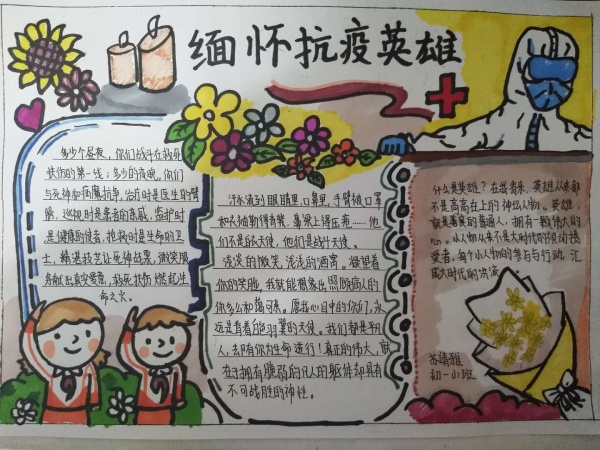 缅怀抗疫英雄
多少个昼夜，你们战斗在救死
扶伤的第一线；多少的夜晚，你们
与死神和病魔抗争，治疗时是医生的臂
膀，巡视时是患者的亲戚，监护时
是健康的使者，抢救时是生命的卫
士，精湛技艺让死神战栗，微笑服
务献出真实爱意，救死扶伤燃起生
命之火。
汗水流到眼睛里，口罩里，手臂被口罩
和衣袖勒得青紫，鼻梁上得压疮……他
们不是白衣天使，他们是战斗天使。
淡淡的微笑，浅浅的酒窝。凝望着
你的笑脸，我就能想象出照顾病人的
你多么和蔼可亲。愿我心目中的你们，永
远是有着洁白羽翼的天使。我们都是平凡
人，却有你为生命逆行！真正的伟大，就
在于拥有脆弱的凡人的躯体却具有
不可战胜的神性。
什么是英雄？在我看来，英雄从来都
不是高高在上的神坛人物。英雄，
就是善良的普通人，拥有一颗伟大的
心。小人物从来不是大时代的被动接
受者，每个小人物的参与与行动，汇
成大时代的洪流。
初一小班